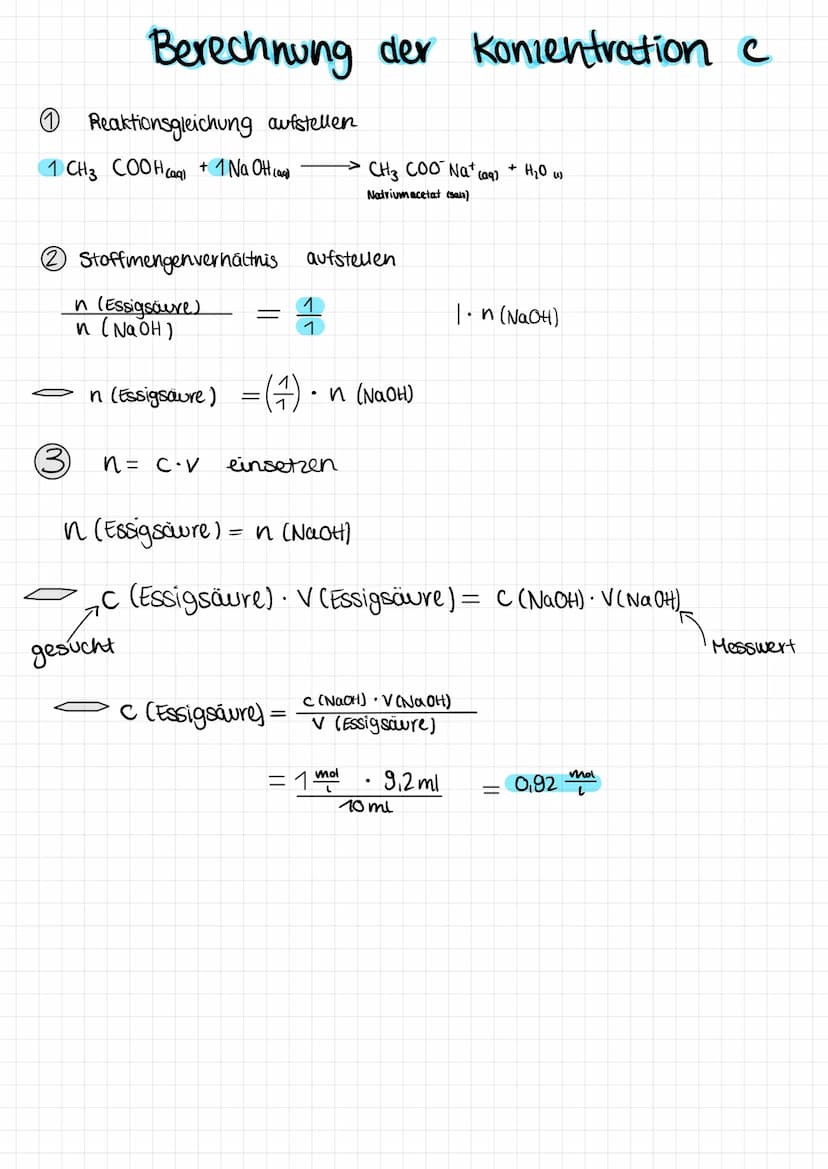 Berechnung der Konzentration c
① Reaktionsgleichung aufstellen
1 CH₃ COOH (aq) + 1 Na OH (aq) ⟶ CH₃ COO⁻ Na⁺ (aq) + H₂O (l)
Natriumacetat (Salz)
② Stoffmengenverhältnis aufstellen
n (Essigsäure) / n (NaOH) = 1/1 | · n (NaOH)
⟺ n (Essigsäure) = (1/1) · n (NaOH)
③ n = c · V einsetzen
n (Essigsäure) = n (NaOH)
⟺ c (Essigsäure) · V (Essigsäure) = c (NaOH) · V (NaOH)
gesucht Messwert
⟺ c (Essigsäure) = c (NaOH) · V (NaOH) / V (Essigsäure)
= 1 mol/l · 9,2 ml / 10 ml = 0,92 mol/l